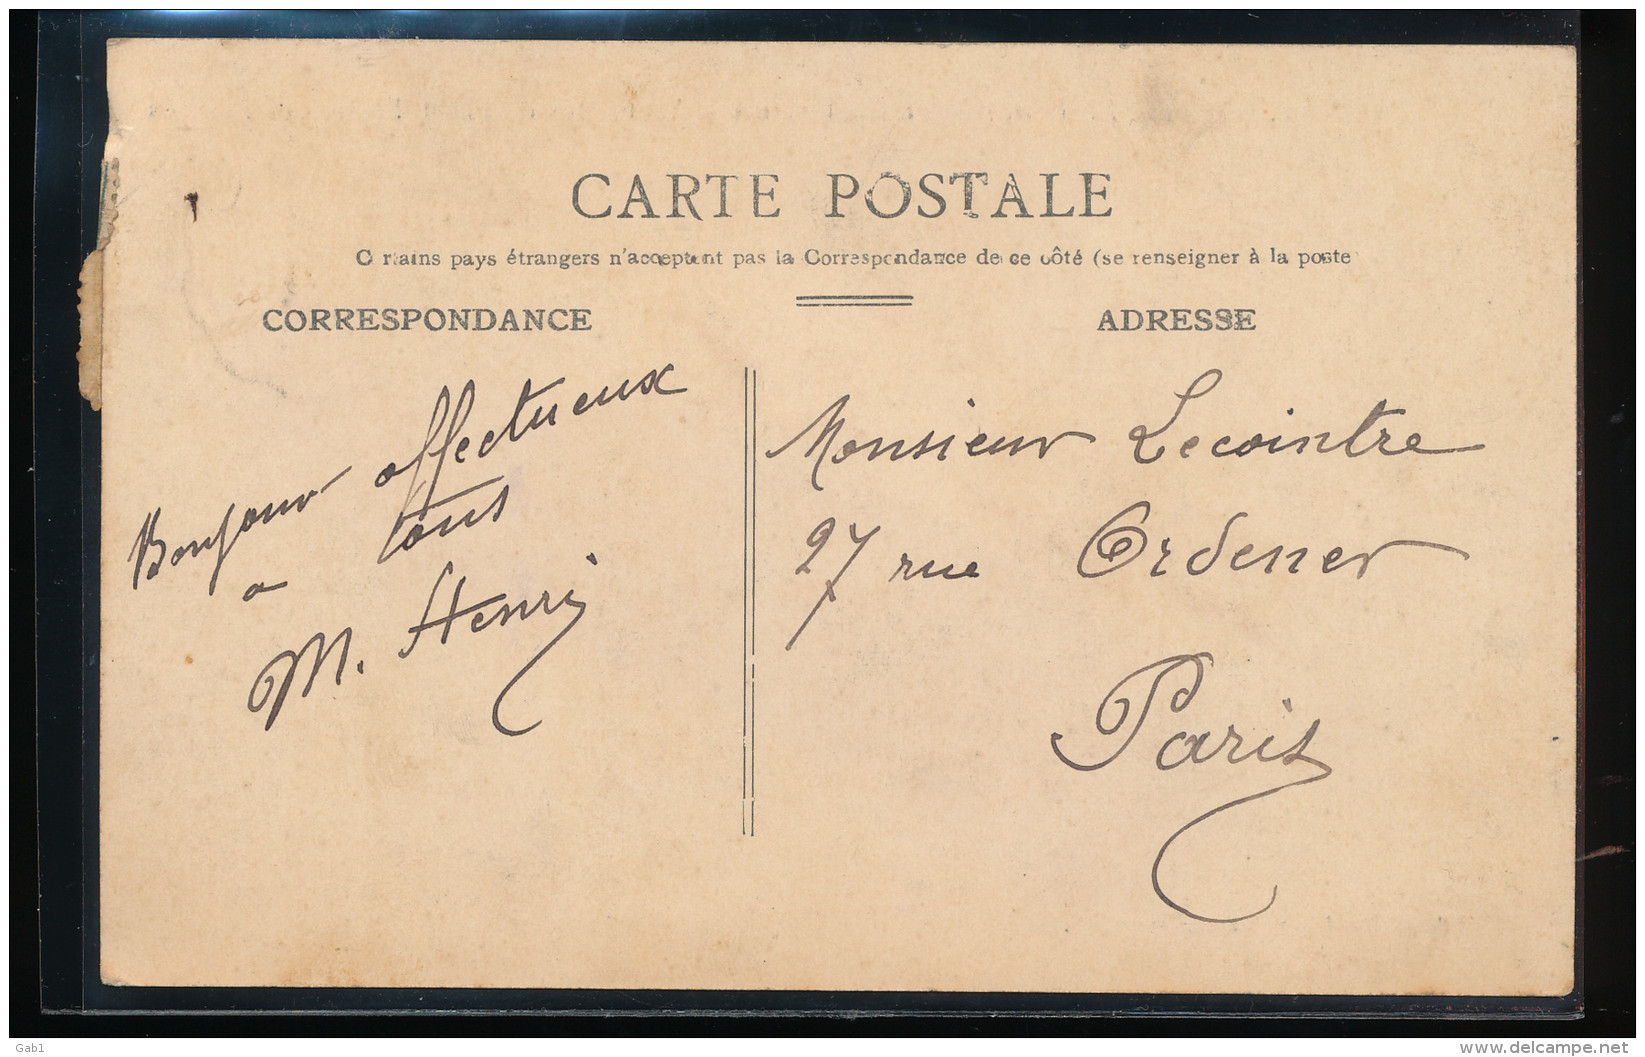 CARTE POSTALE
C rtains pays étrangers n'acceptent pas la Correspondance de ce côté (se renseigner à la poste
CORRESPONDANCE
Bonjour affectueux
a tous
M. Henri
ADRESSE
Monsieur Lecointre
27 rue Ordener
Paris
Gab1
delcampe.net